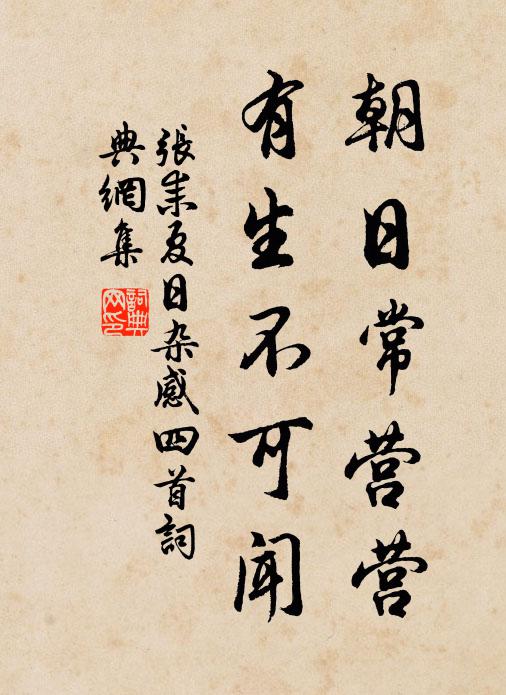 朝日常营营
有生不可闻
張耒夏日杂感四首詞
典網集
詞典网印